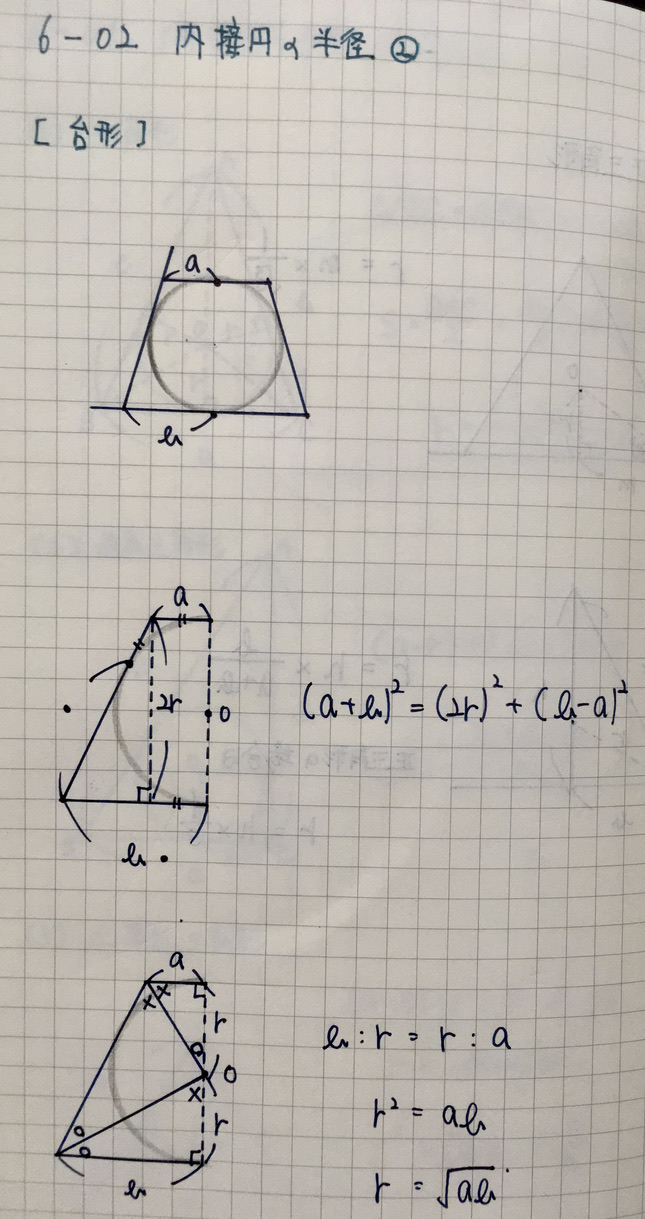 6-02 内接円の半径 ②
[台形]
a
b
a
2r
O
(a+b)² = (2r)² + (b-a)²
b
a
r
O
r
b
b : r = r : a
r² = ab
r = √ab